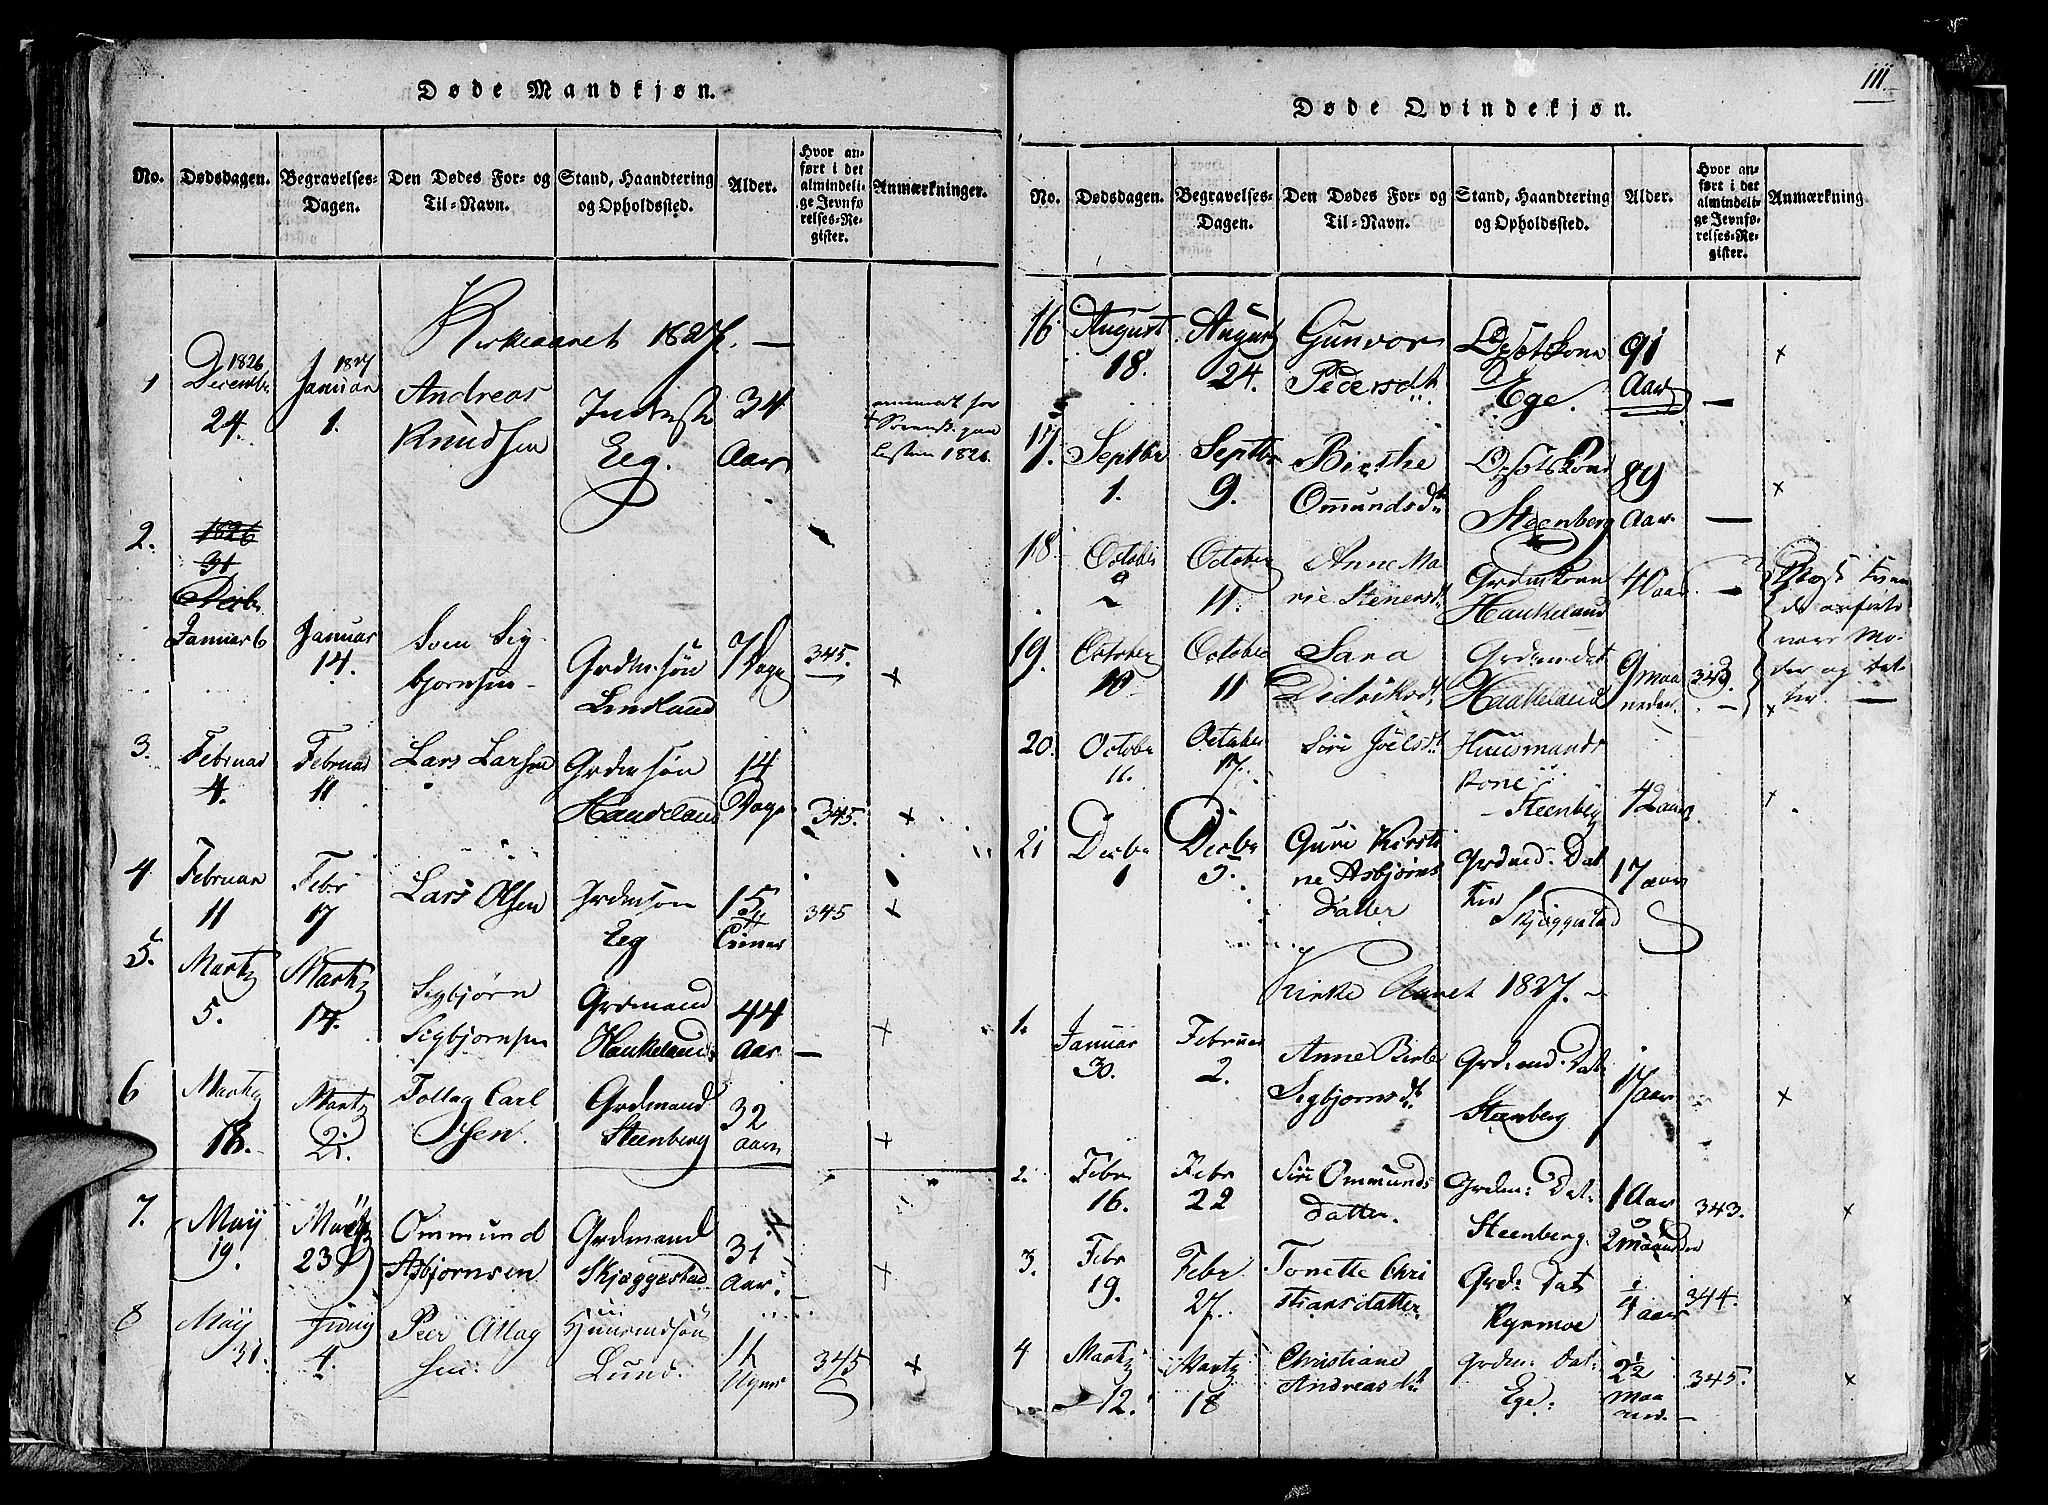 Døde Mandkjøn.
No. Dødsdagen. Begravelses-Dagen. Den Dødes For- og Til-Navn. Stand, Haandtering og Opholdssted. Alder. Hvor anført i det almindelige Jevnførelses-Register. Anmærkninger.
Kirkeaaret 1827. —
1 1826 December 24. 1827 Januar 1. Andreas Knudsen Eeg. 34 Aar
Listen 1826.
2. 1826 31 Decbr. Januar 6 Januar 14. Sigbjørnsen Grdm. søn Lindland 7 Dage 345. +
3. Februar 4. Februar 11 Lars Larsen Grdm søn Haukeland 14 Dage 345. +
4 Februar 11 Febr 17 Lars Olsen Grdm søn Eeg 15 345 +
5. Martz 5. Martz 14. Sigbjørn Sigbjørnsen Grdmand Haukeland 44 Aar — +
6 Martz 18. Martz 21. Tollag Carlsen. Grdmand Steenberg 32 aar +
7. May 19. May 23 Ommund Asbjørnsen Grdmand Skjæggestad 31 Aar. — +
8 May 31. Juny 4. Peer Ollagsen. Huusmdsøn Lund. 11 Uger 345 +
111.
Døde Qvindekjøn.
No. Dødsdagen. Begravelses-Dagen. Den Dødes For- og Til-Navn. Stand, Haandtering og Opholdssted. Alder. Hvor anført i det almindelige Jevnførelses-Register. Anmærkning
16 August 18. August 24. Gunvor Pedersdtr. Opsotskone Ege. 91 Aar — +
17. Septbr 1. Septbr 9. Birthe Ommundsdtr Opsotskone Steenberg 89 Aar. — +
18. October 9 October 11. Anne Marie Stenersdtr Grdmkone Haukeland 40 aar. —
19. October 10 October 11 Sara Didriksdtr Grdm: dat Haukeland 9 maaneder. 343. +
der og Datter. —
20. October 11. October 17. Siri Joelsdtr Huusmandskone Steenberg 42 aar +
21 Decbr 1 Decbr 5. Guri Kirstine Asbjørnsdatter Grdmd: Dat Skjæggestad 17 aar
Kirke Aaret 1827. —
1. Januar 30. Februar 2. Anne Birte Sigbjørnsdtr Grdmd. Dat Steenberg 17 aar +
2. Febr 16. Febr 22 Siri Ommundsdatter. Grdm: Dat: Steenberg. 1 Aar 2 maaneder 343. +
3. Febr 19. Febr 27. Tonette Christiansdatter Grd: Dat Rysmoe 1/4 aar 344. +
4 Martz 12. Martz 18 Christiane Andreasdtr Grdm: Dat: Ege. 2 1/2 maaned. 345. +